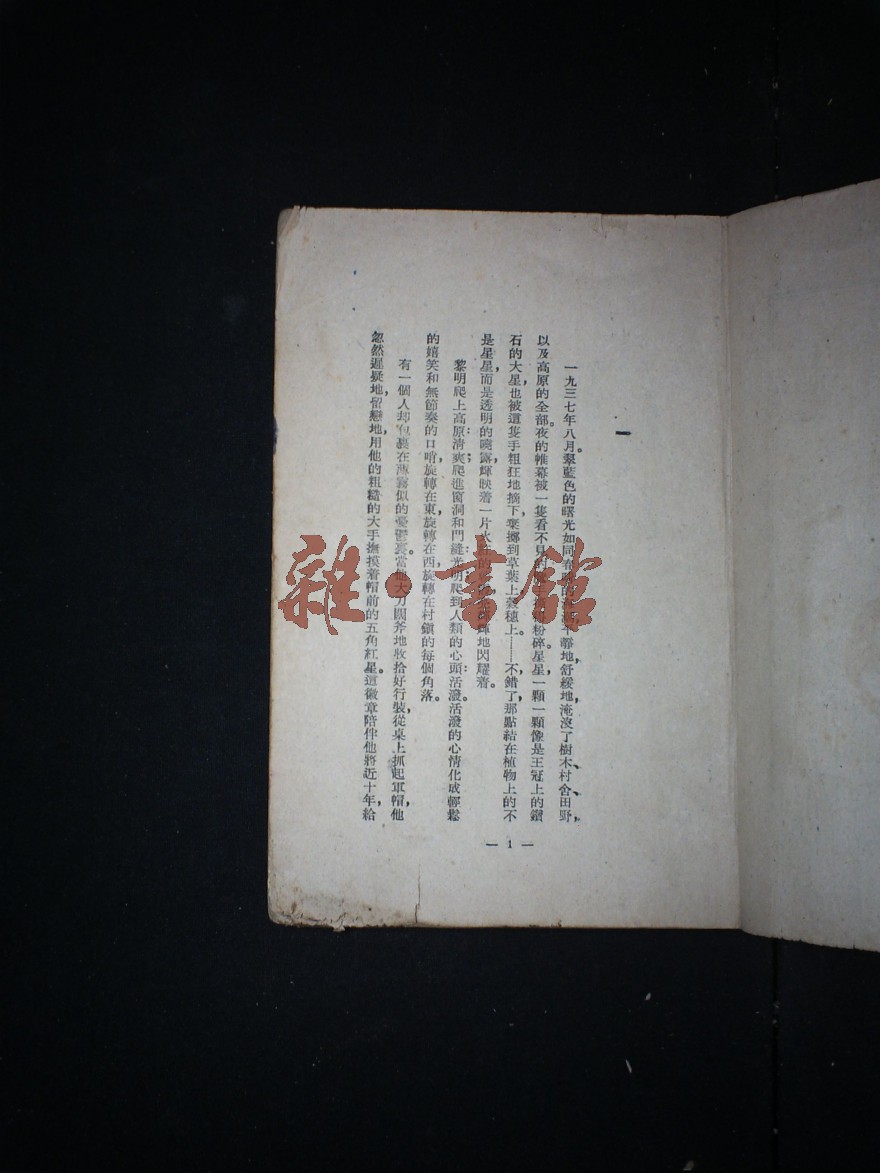 一
一九三七年八月。翠藍色的曙光如同春 地,舒緩地,淹沒了樹木、村舍、田野、
以及高原的全部。夜的帷幕被一隻看不見的 粉碎。星星,一顆一顆像是王冠上的鑽
石的大星,也被這隻手粗狂地摘下,棄擲到草葉上,穀穗上。……不錯了,那點結在植物上的不
是星星,而是透明的 露,輝映着一片 地閃耀着。
黎明爬上高原;清爽爬進窗洞和門縫;光明爬到人類的心頭。活潑活潑的心情化成輕鬆
的嬉笑和無節奏的口哨,旋轉在東,旋轉在西,旋轉在村鎭的每個角落。
有一個人却包裹在薄霧似的憂鬱裏。當他大刀闊斧地收拾好行裝,從桌上抓起軍帽,他
忽然遲疑地,留戀地,用他的粗糙的大手撫摸着帽前的五角紅星。這徽章陪伴他將近十年,給
— 1 —
雜·書館